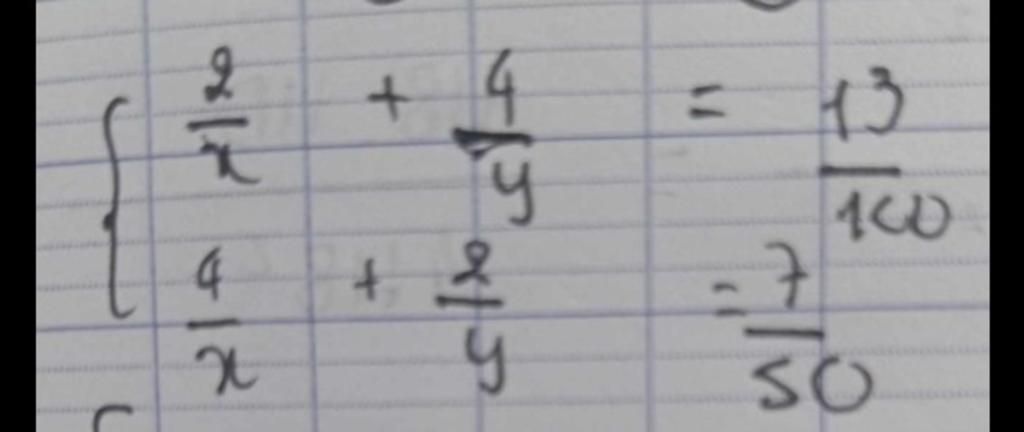 2/x + 4/y = 13/100
4/x + 2/y = 7/50